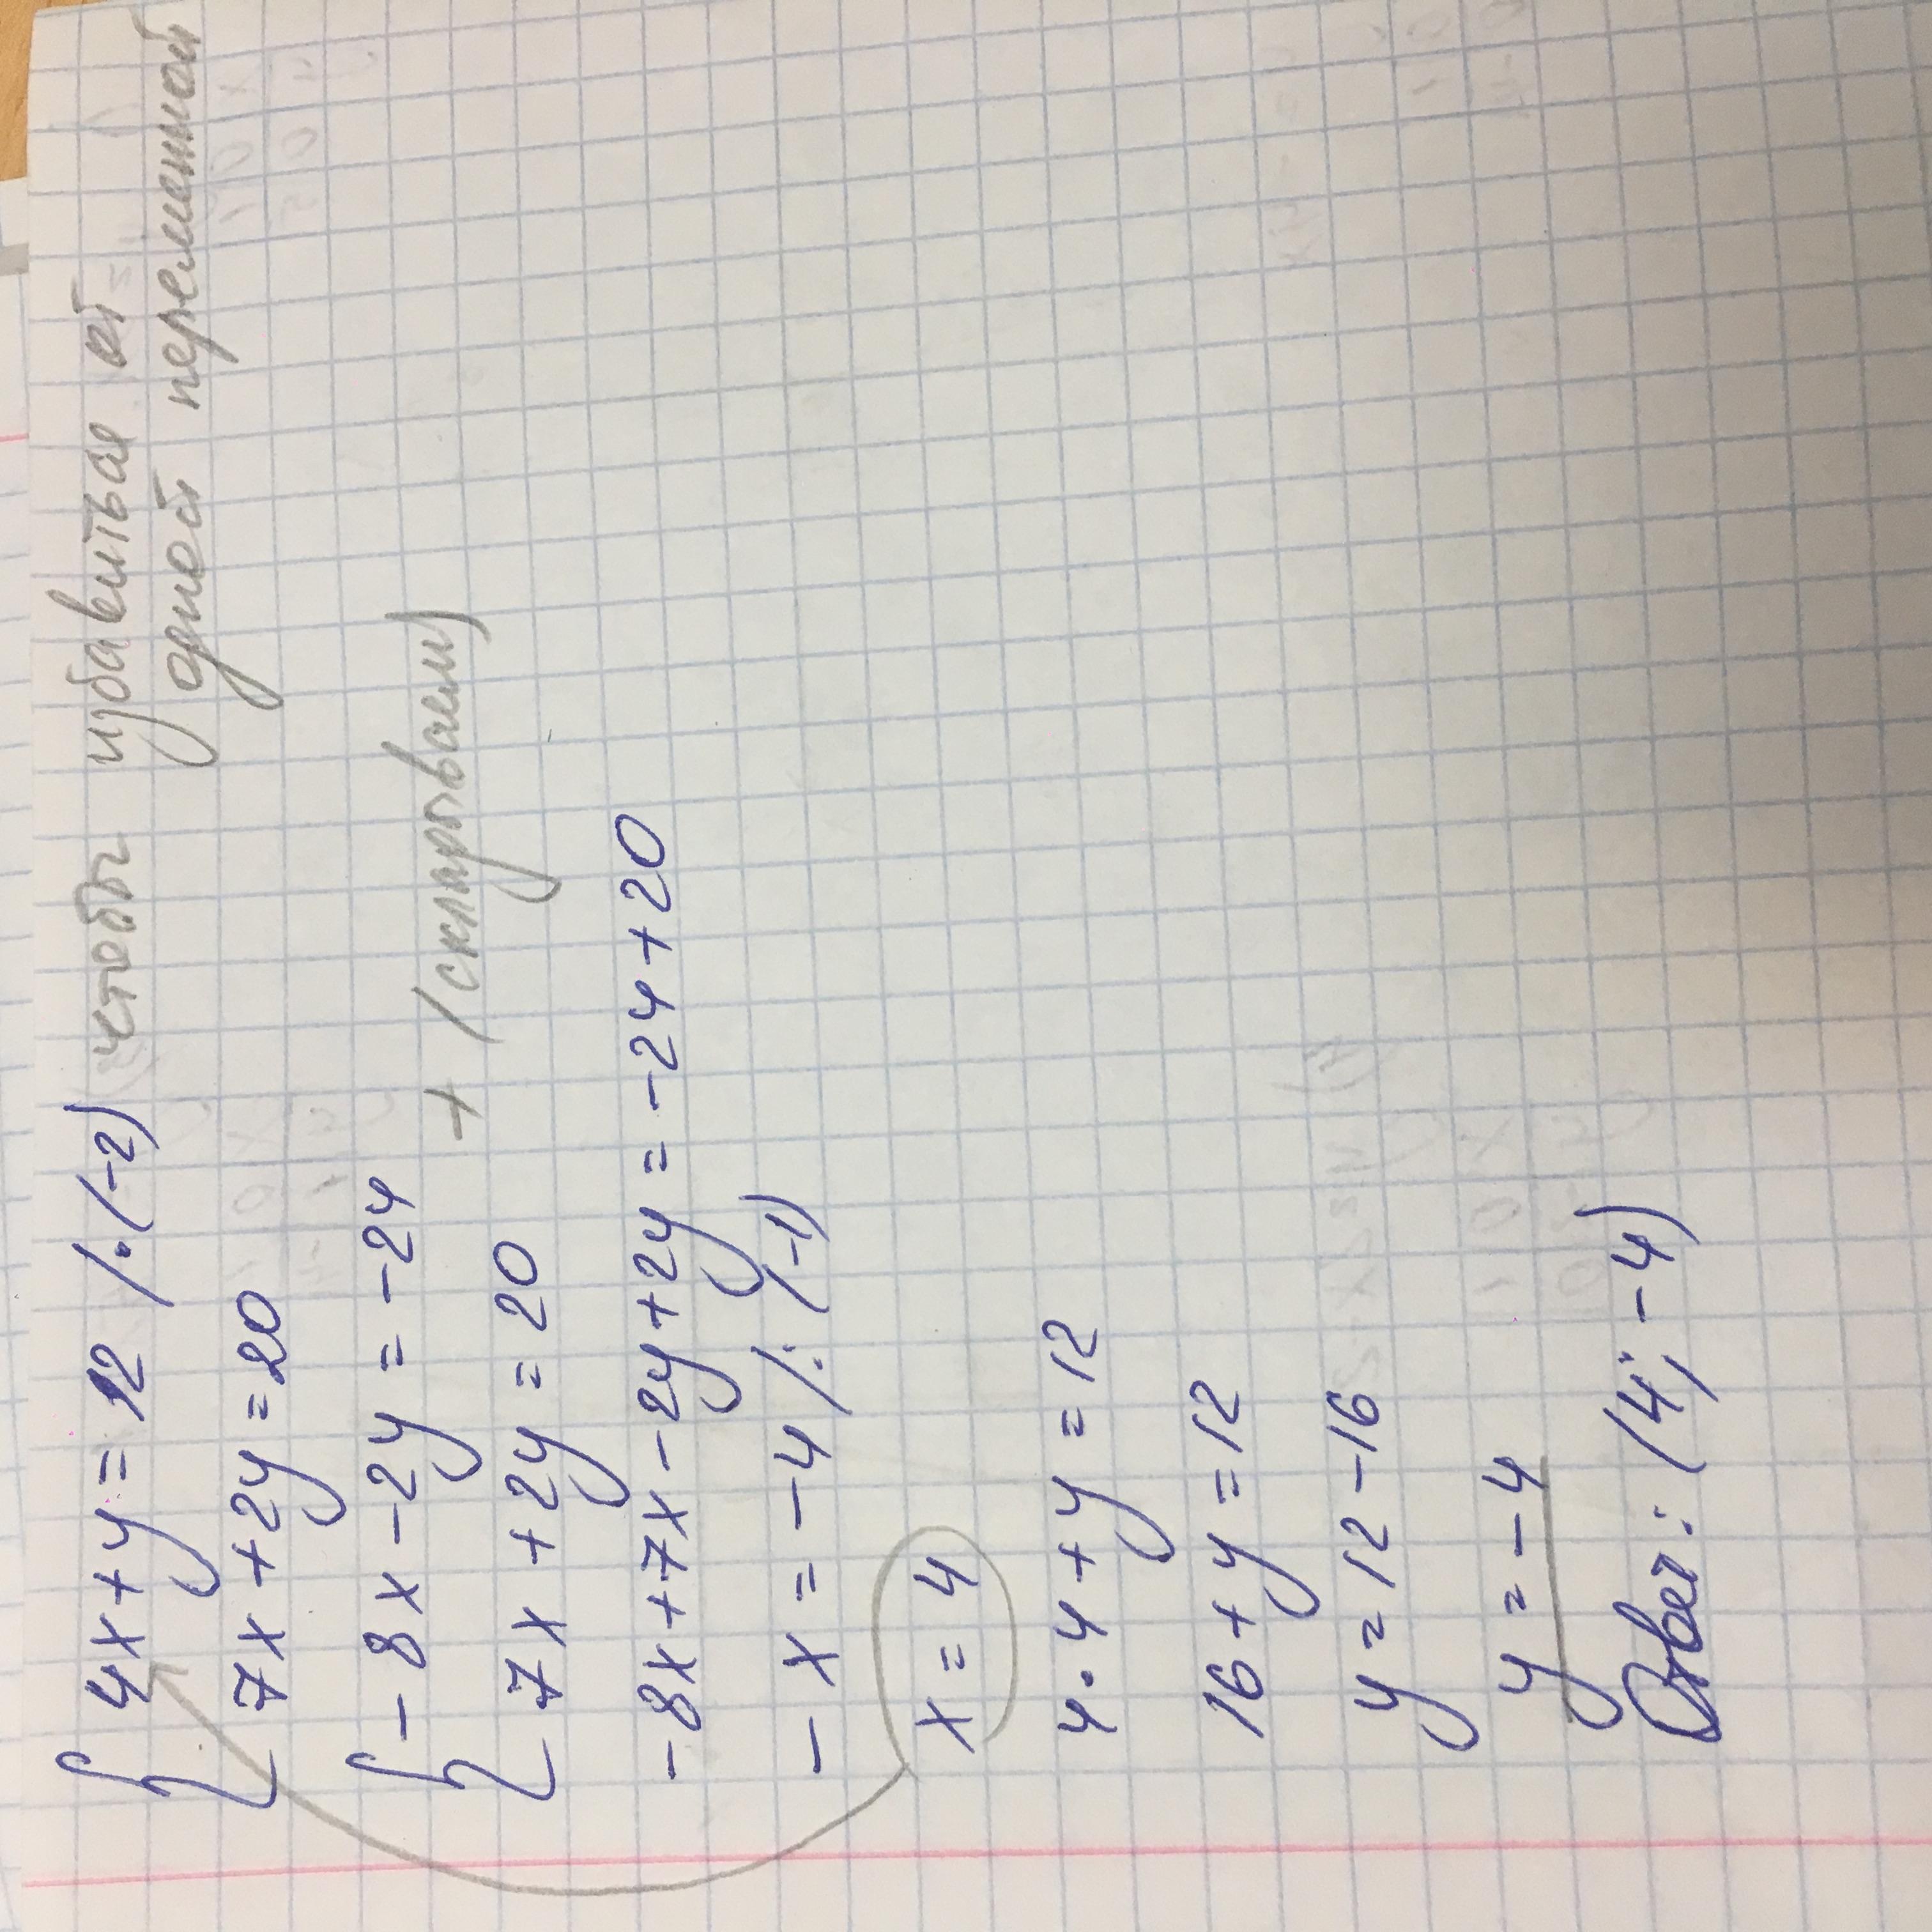 4x+y=12 /·(-2) чтобы избавиться от
одной переменной
7x+2y=20
-8x-2y=-24
+ (складываем)
7x+2y=20
-8x+7x-2y+2y=-24+20
-x=-4 /:(-1)
x=4
4·4+y=12
16+y=12
y=12-16
y=-4
Ответ: (4;-4)